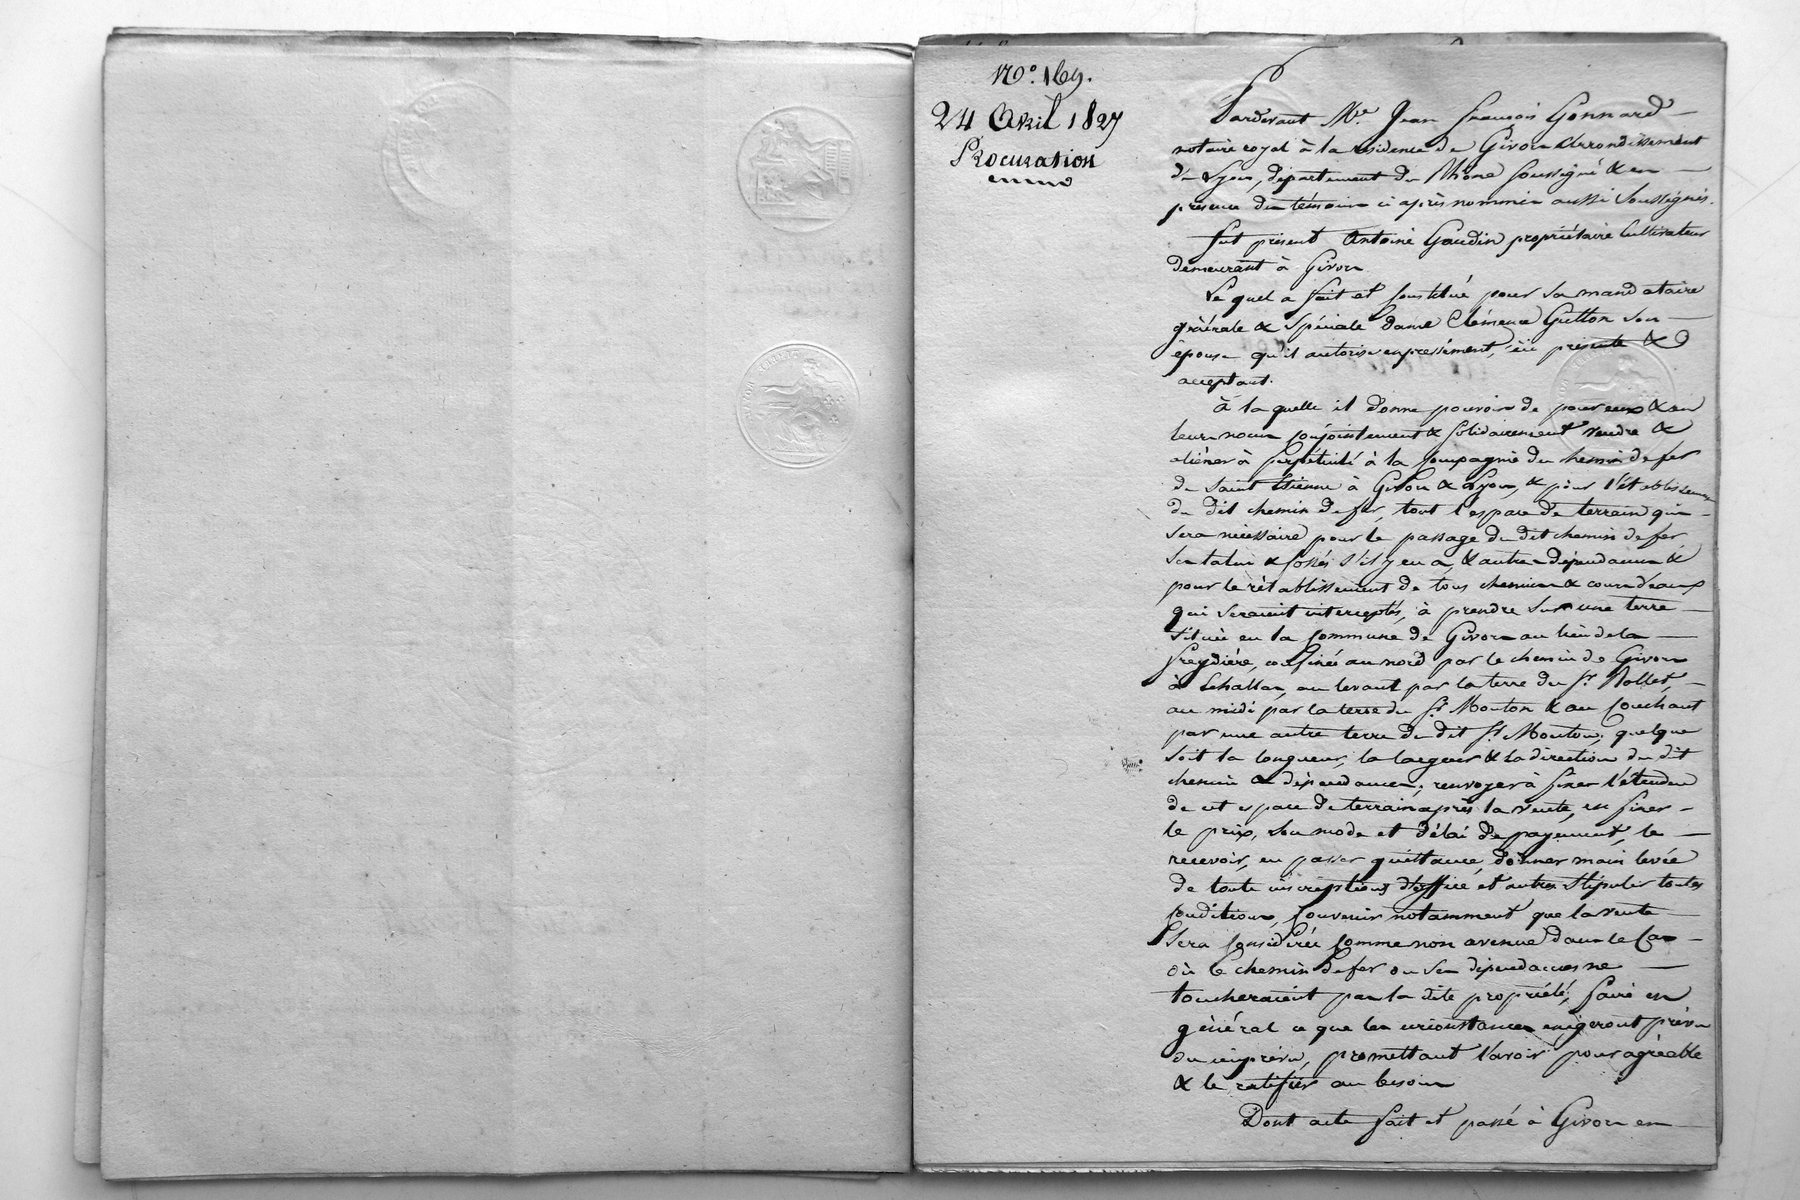 N.º 169.
24 Avril 1827
Procuration
Pardevant Me Jean François Gonnard
notaire royal à la résidence de Givors arrondissement
de Lyon, département du Rhône soussigné & en
présence des témoins ci après nommés aussi soussignés.
fut présent Antoine Gaudin propriétaire cultivateur
demeurant à Givors
Le quel a fait et constitué pour sa mandataire
générale & spéciale dame Clémence Gutton son
épouse qu'il autorise expressément, ici présente &
acceptant.
à la quelle il donne pouvoir de pour eux & en
leurs noms conjointement & solidairement vendre &
aliéner à perpétuité à la Compagnie du chemin de fer
de Saint Etienne à Givors & Lyon, & pour l'établissement
du dit chemin de fer, tout l'espace de terrain qui
sera nécessaire pour le passage du dit chemin de fer,
ses talus & fossés s'il y en a, & autres dépendances &
pour le rétablissement de tous chemins & cours d'eaux
qui seraient interceptés, à prendre sur une terre
située en la commune de Givors au lieu de la
Freydière, confinée au nord par le chemin de Givors
à Echallas, au levant par la terre du Sr Nollet,
au midi par la terre du Sr Mouton & au couchant
par une autre terre du dit Sr Mouton; quelque
soit la longueur, la largeur & la direction du dit
chemin & dépendances; renvoyer à fixer l'étendue
de cet espace de terrain après la vente, en fixer
le prix, son mode et délai de payement, le
recevoir, en passer quittance, donner main levée
de toute inscriptions d'office et autres stipuler toutes
conditions, convenir notamment que la vente
sera considérée comme non avenue dans le cas
où le chemin de fer ou ses dépendances ne
toucheraient pas la dite propriété; faire en
général ce que les circonstances exigeront prévu
ou imprévu, promettant l'avoir pour agréable
& le ratifier au besoin
Dont acte fait et passé à Givors en